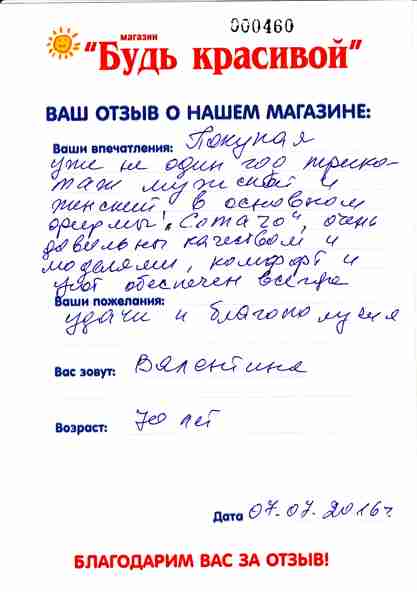 000460
магазин
“Будь красивой”
ВАШ ОТЗЫВ О НАШЕМ МАГАЗИНЕ:
Ваши впечатления: Покупая
уже не один год трико-
таж мужской и
женский в основном
фирмы "Сотаго", очень
довольны качеством и
моделями, комфорт и
уют обеспечен всегда
Ваши пожелания:
удачи и благополучия
Вас зовут: Валентина
Возраст: 70 лет
Дата 07.07.2016г.
БЛАГОДАРИМ ВАС ЗА ОТЗЫВ!